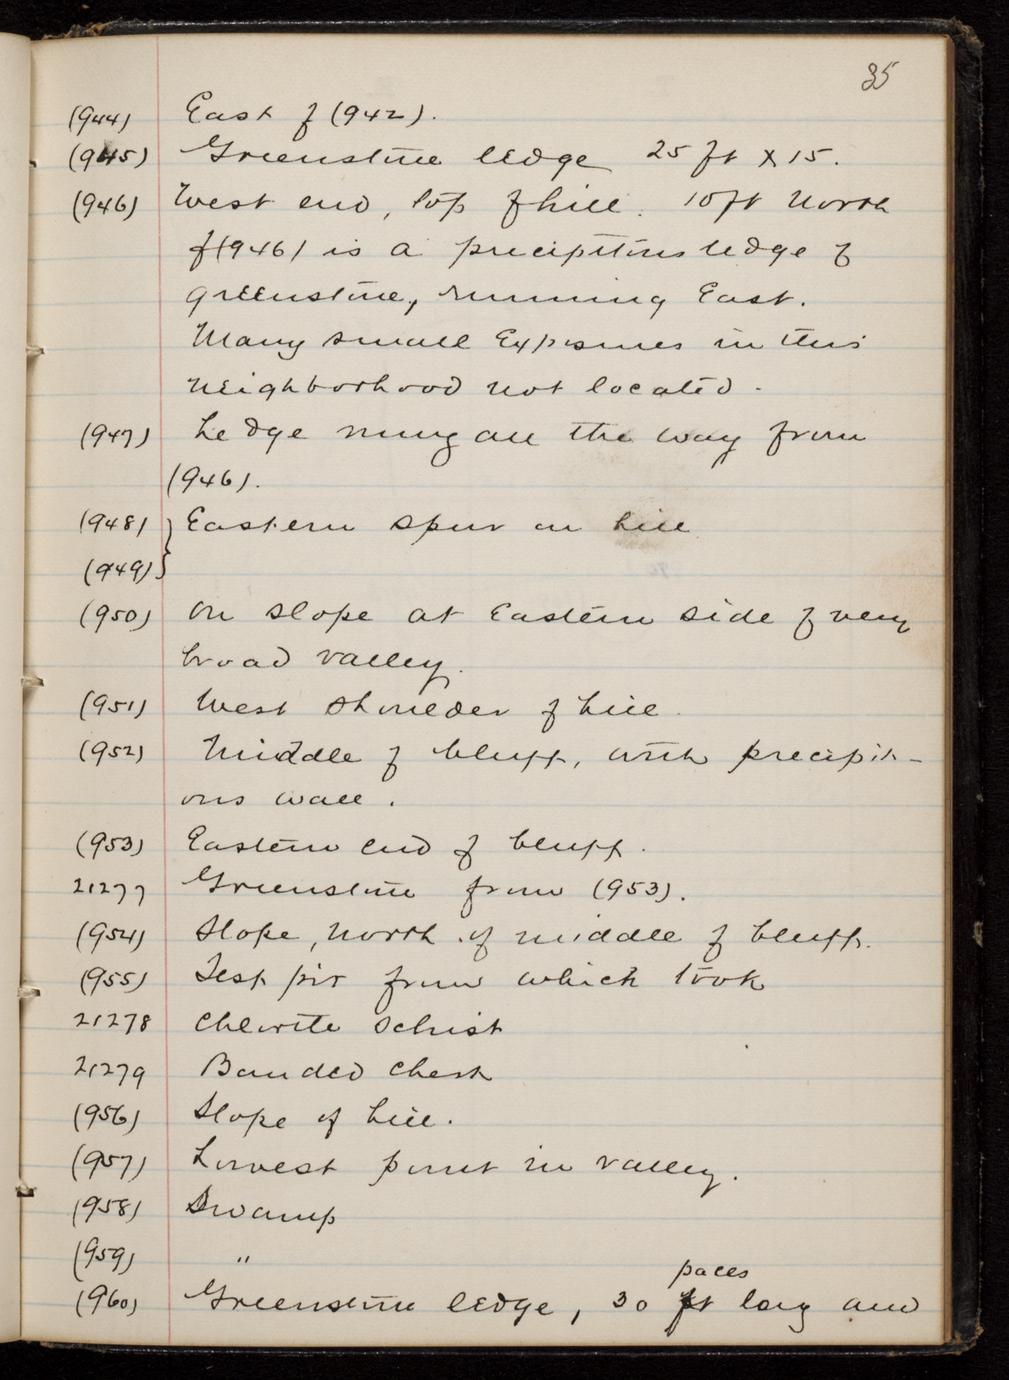 35
(944) East of (942).
(945) Greenstone ledge 25 ft X 15.
(946) West end, top of hill. 10 ft North
of (946) is a precipitous ledge of
greenstone, running East.
Many small Exposures in this
neighborhood not located.
(947) Ledge rung all the way from
(946).
(948) } Eastern spur on hill
(949) }
(950) On slope at Eastern side of very
broad valley.
(951) West shoulder of hill.
(952) Middle of bluff, with precipit-
ous wall.
(953) Eastern end of bluff.
21277 Greenstone from (953).
(954) Slope, North of middle of bluff.
(955) Test pit from which took
21278 Chlorite schist
21279 Banded chert
(956) Slope of hill.
(957) Lowest point in valley.
(958) Swamp
(959) "
paces
(960) Greenstone ledge, 30 ft long and